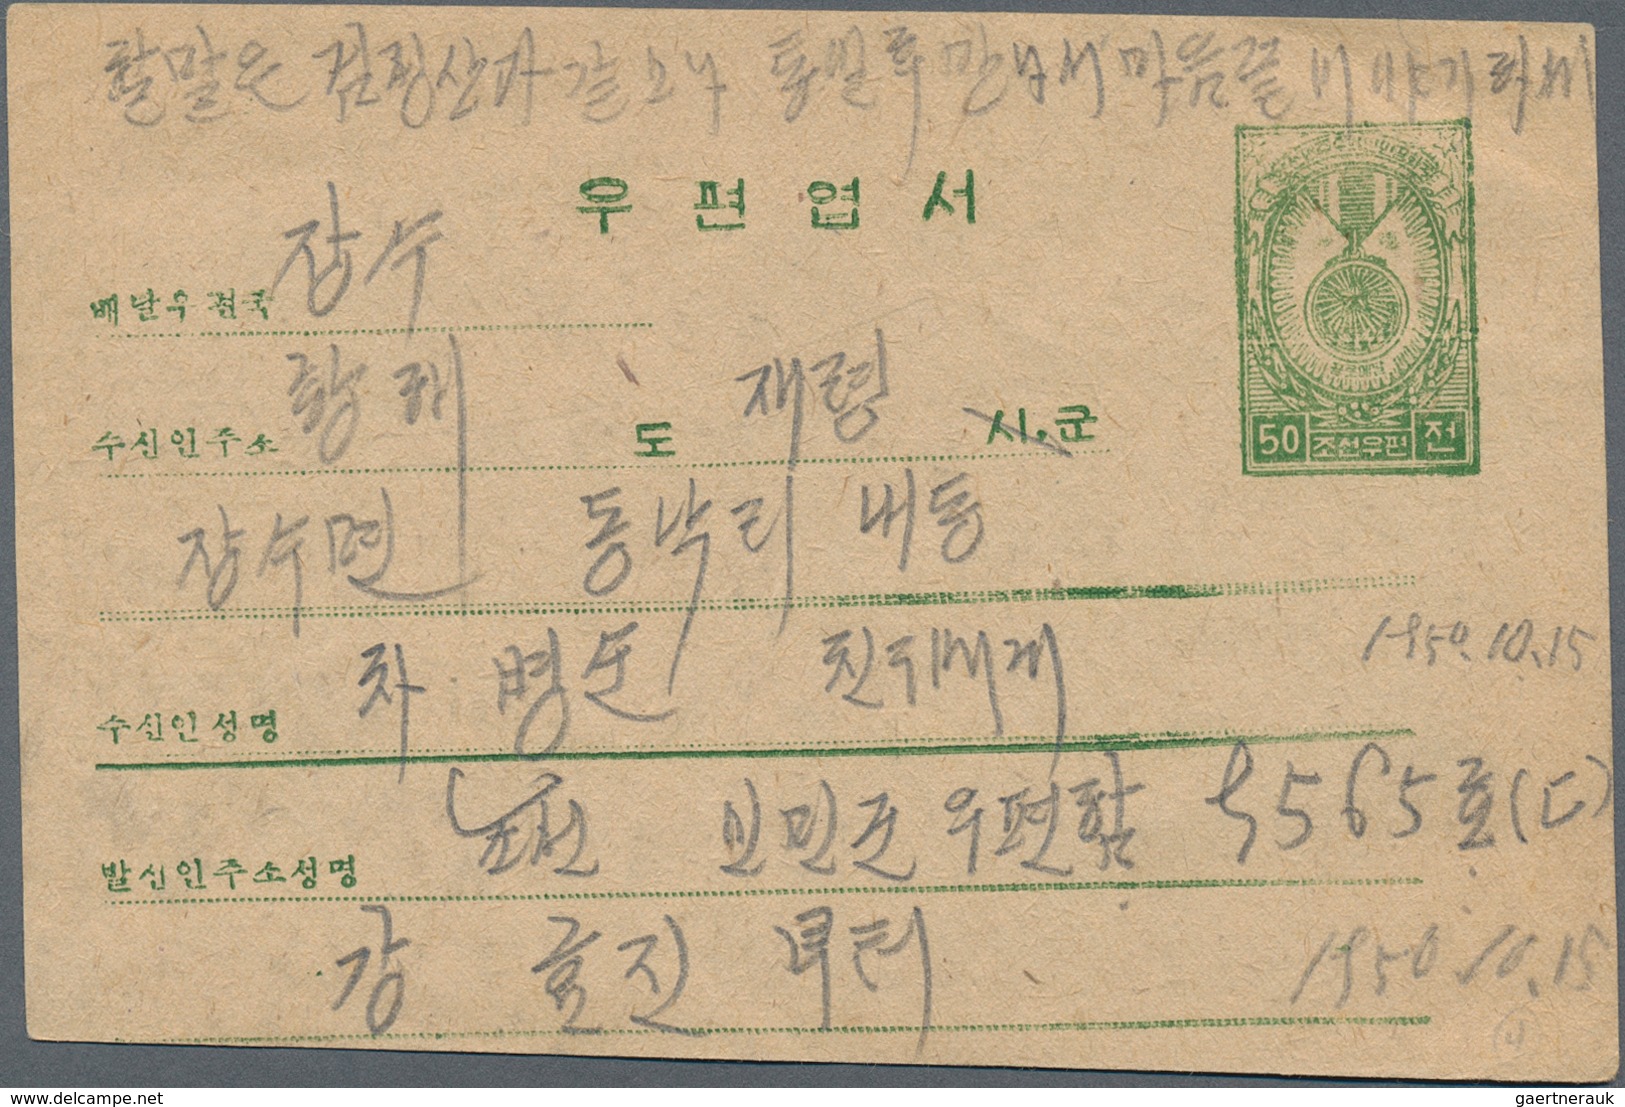 할말은 검정산과 같으나 통일후 만나서 마음껏 이야기하세
우편엽서
50 조선우편 전
배달우편국 장수
수신인주소 황해 도 재령 시.군
장수면 동낙리 내동
수신인성명 차병문 친우에게
1950.10.15
발신인주소성명 인민군우편함 호(ㄷ)
강 효진 부터
1950.10.15
delcampe.net
gaertnerauk